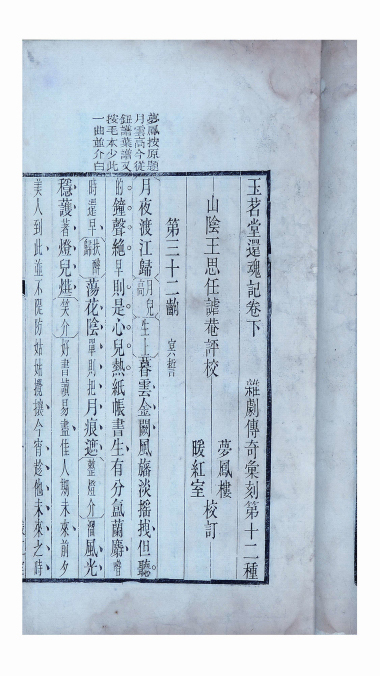 夢鳳按原題
月雲高今從
鈕譜葉譜又
按毛本少此
一曲並介白
玉茗堂還魂記卷下　雜劇傳奇彙刻第十二種
山陰王思任謔菴評校　夢鳳樓
暖紅室　校訂
第三十二齣　冥誓
月夜渡江歸月兒高生上暮雲金闕風旛淡搖拽但聽
的鐘聲絕早則是心兒熱紙帳書生有分氳蘭麝嗜
時還早歸扶醉蕩花陰單則把月痕遮整燈介溜風光
穩護著燈兒㸅笑介好書讀易盡佳人期未來前夕
美人到此並不隄防姑姑攪攘今宵趁他未來之時